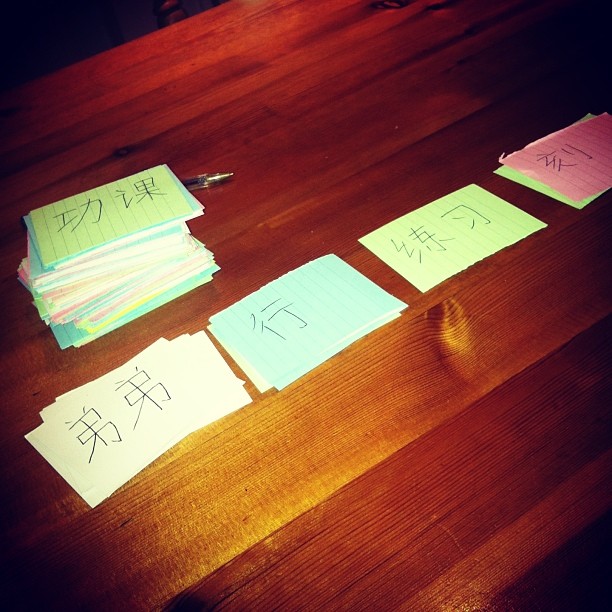 功课
弟弟
行
练习
刻